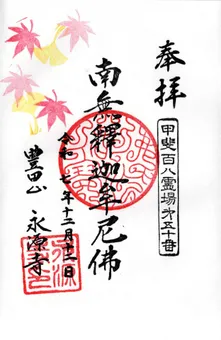 奉拝
甲斐百八霊場第五十番
南無釋迦牟尼佛
令和七年十二月十二日
豊田山
永源寺